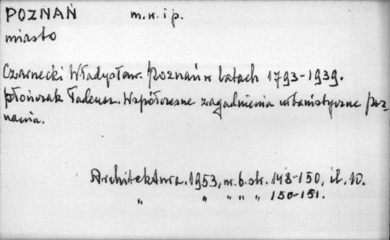 POZNAŃ m.n. i p.
miasto
Czarnecki Władysław. Poznań w latach 1793-1939.
Płończak Tadeusz. Współczesne zagadnienia urbanistyczne Poz-
nania.
Architektura. 1953, nr. 6. str. 148-150, il. 10.
" " " " " 150-151.